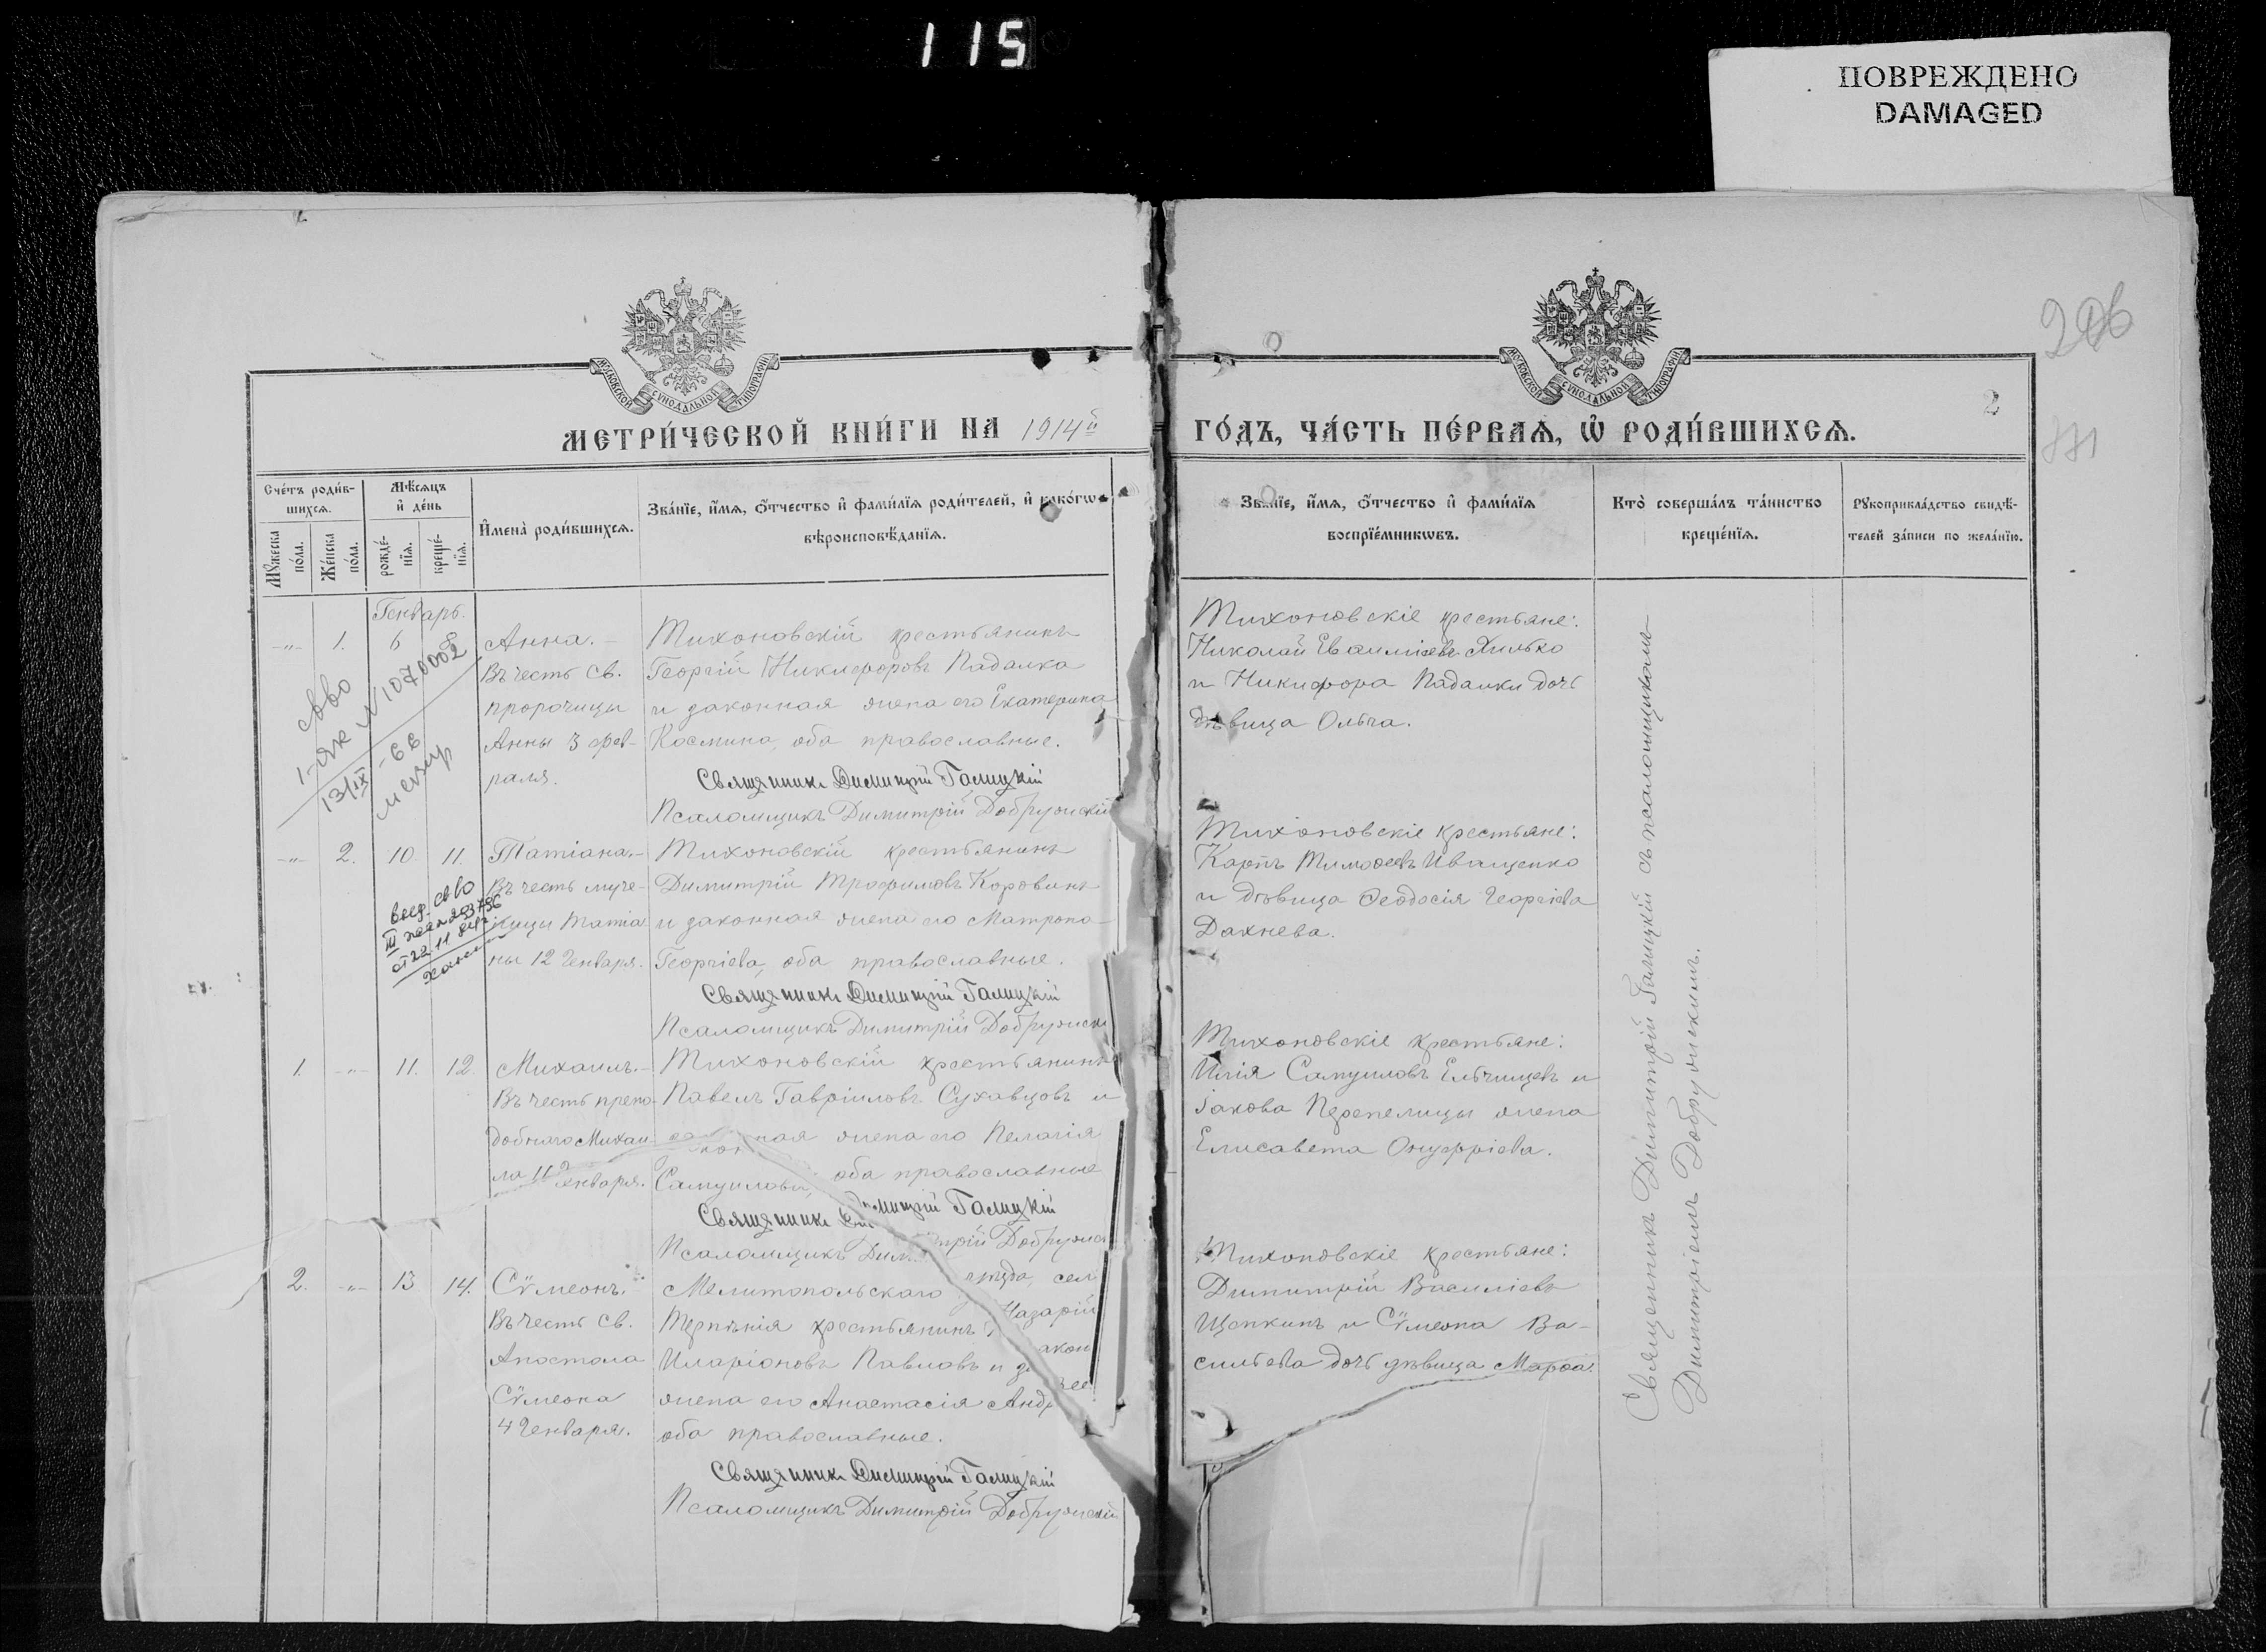 115
ПОВРЕЖДЕНО
DAMAGED
206
2
МОСКОВСКОЙ СѴНОДАЛЬНОЙ ТИПОГРАФІИ
МОСКОВСКОЙ СѴНОДАЛЬНОЙ ТИПОГРАФІИ
МЕТРИ́ЧЕСКОЙ КНИ́ГИ НА 1914й
ГО́ДЪ, ЧА́СТЬ ПЕ́РВАѦ, Ѡ РОДИ́ВШИХСѦ.
Сче́тъ роди́в-
шихсѧ.
Мꙋжеска по́ла.
Же́нска по́ла.
Мѣ́сѧцъ
и҆ де́нь
рожде́-
нїѧ.
креще́-
нїѧ.
И҆мена̀ роди́вшихсѧ.
Зва́нїе, и҆́мѧ, ѻ҆́тчество и҆ фами́лїѧ роди́телей, и҆ како́гѡ
вѣроисповѣ́данїѧ.
Зва́нїе, и҆́мѧ, ѻ҆́тчество и҆ фами́лїѧ
воспрїе́мникѡвъ.
Кто̀ соверша́лъ та́инство
креще́нїѧ.
Рꙋкоприкла́дство свидѣ́-
телей за́писи по жела́нїю.
Генварь.
-"- 1. 6 8 Анна. –
Въ честь Св.
пророчицы
Анны 3 фев-
раля.
Тихоновскій крестьянинъ
Георгій Никифоровъ Падалка
и законная жена его Екатерина
Космина, оба православные.
Священникъ Димитрій Галицкій
Псаломщикъ Димитрій Добружскій
Тихоновскіе крестьяне:
Николай Евѳиміевъ Хилько
и Никифора Падалки дочь
дѣвица Ольга.
св-во
I-як № 1070002
13/IX - 66
-"- 2. 10 11. Татіана. –
Въ честь муче-
ницы Татіа-
ны 12 Генваря.
Тихоновскій крестьянинъ
Димитрій Трофимовъ Коровинъ
и законная жена его Матрона
Георгіева, оба православные.
Священникъ Димитрій Галицкій
Псаломщикъ Димитрій Добружск
Тихоновскіе крестьяне:
Карпъ Тимоѳеевъ Иващенко
и дѣвица Ѳеодосія Георгіева
Дахнева.
св-во
1. -"- 11. 12. Михаилъ. –
Въ честь препо-
добнаго Михаи-
ла 11 Генваря.
Тихоновскій крестьянинъ
Павелъ Гавріиловъ Сухавцовъ и
ная жена его Пелагія
Самуилова, оба православные
Священникъ Димитрій Галицкій
Псаломщикъ Димитрій Добружс
Тихоновскіе крестьяне:
Илія Самуиловъ Ельчищевъ и
Іакова Перепелицы жена
Елисавета Онуфріева.
2. -"- 13 14. Сѵмеонъ.
Въ честь Св.
Апостола
Сѵмеона
4 Генваря.
Мелитопольскаго уѣзда, сел
Терпѣнія крестьянинъ Назарій
Иларіоновъ Павловъ и закон
жена его Анастасія Андреев
оба православные.
Священникъ Димитрій Галицкій
Псаломщикъ Димитрій Добружскій
Тихоновскіе крестьяне:
Димитрій Василіевъ
Щепкинъ и Сѵмеона Ва-
сильева дочь дѣвица Марѳа.
Священникъ Димитрій Галицкій съ псаломщикомъ
Димитріемъ Добружскимъ.